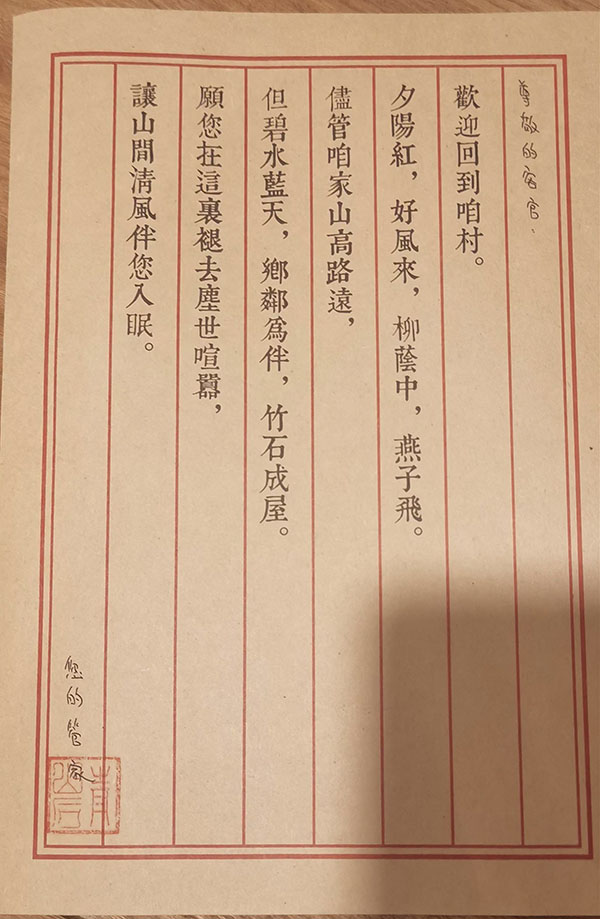 尊敬的客官、
歡迎回到咱村。
夕陽紅，好風來，柳蔭中，燕子飛。
儘管咱家山高路遠，
但碧水藍天，鄉鄰爲伴，竹石成屋。
願您在這裏褪去塵世喧囂，
讓山間清風伴您入眠。
您的管家